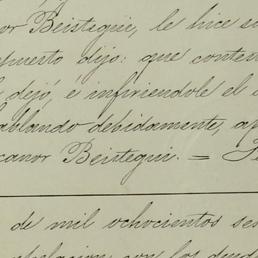 or Beistegüi, le hice s
puesto dijo: que contes
dejó, é infiriendole el
ablando debidamente, ap
canor Beistegui. =
de mil ochocientos se
apelacion con los dued